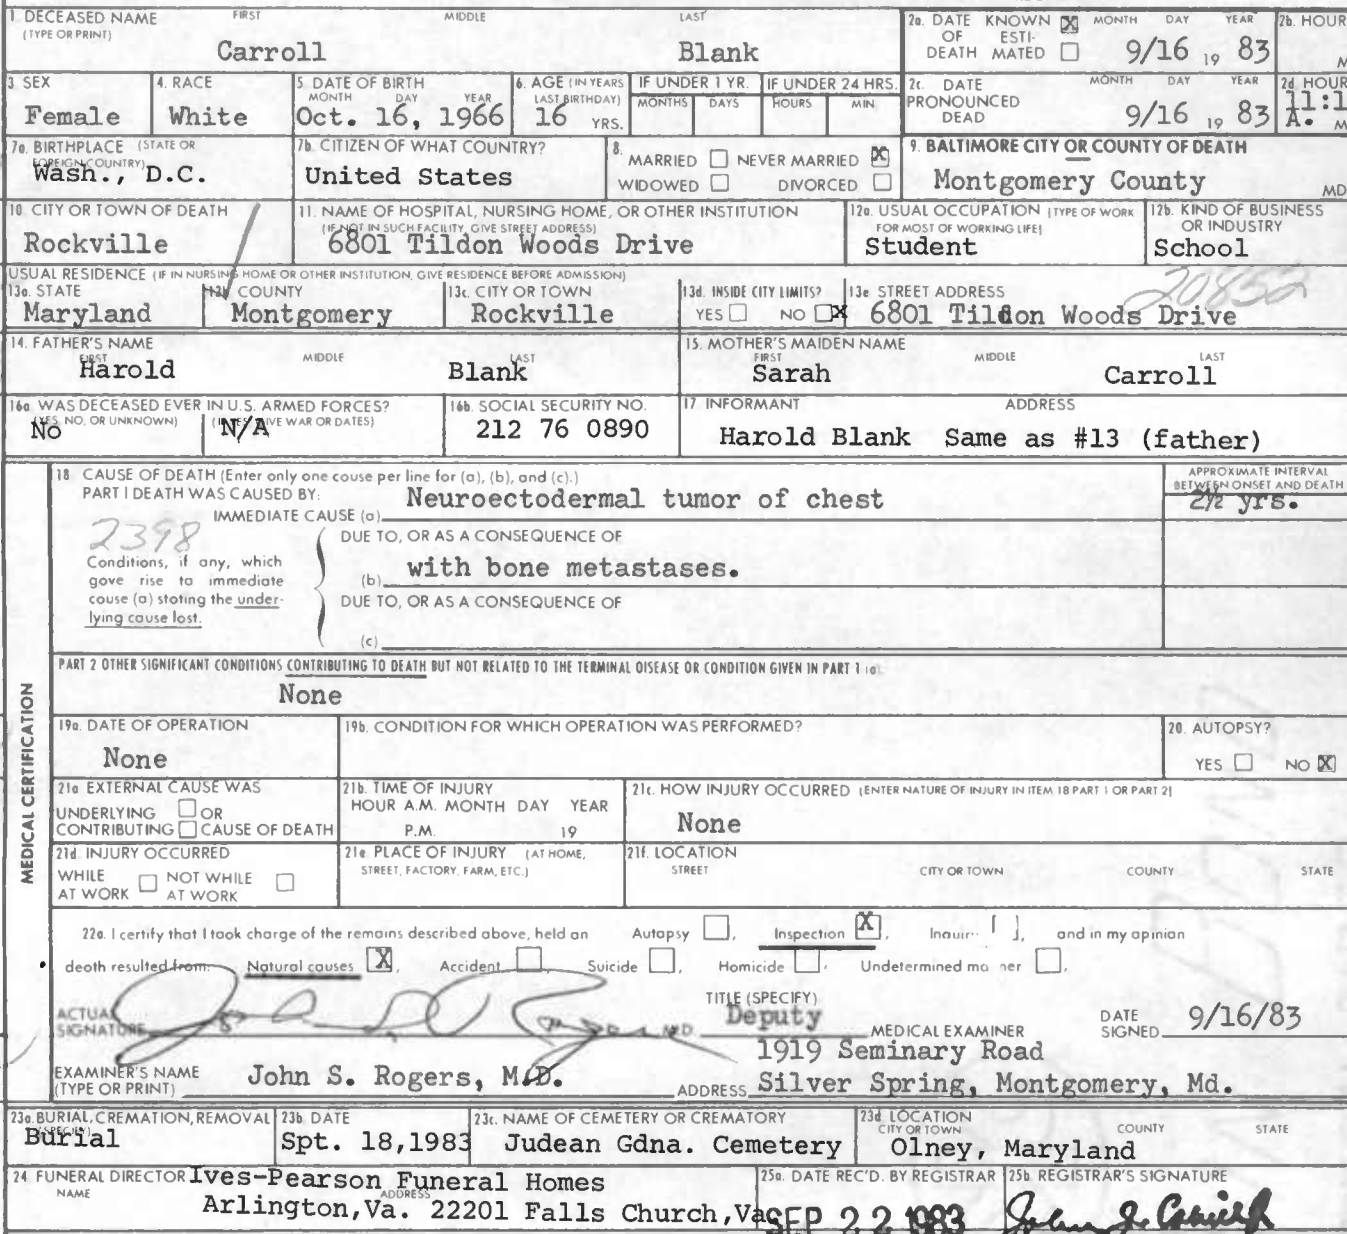 1. DECEASED NAME FIRST MIDDLE LAST
(TYPE OR PRINT)
Carroll Blank
2a. DATE KNOWN X MONTH DAY YEAR
OF ESTI-
DEATH MATED
9/16 19 83
2b. HOUR
M
3. SEX
Female
4. RACE
White
5. DATE OF BIRTH
MONTH DAY YEAR
Oct. 16, 1966
6. AGE (IN YEARS
LAST BIRTHDAY)
16 YRS.
IF UNDER 1 YR.
MONTHS DAYS
IF UNDER 24 HRS.
HOURS MIN.
2c. DATE MONTH DAY YEAR
PRONOUNCED
DEAD
9/16 19 83
2d. HOUR
11:1
A. M
7a. BIRTHPLACE (STATE OR
FOREIGN COUNTRY)
Wash., D.C.
7b. CITIZEN OF WHAT COUNTRY?
United States
8.
MARRIED NEVER MARRIED X
WIDOWED DIVORCED
9. BALTIMORE CITY OR COUNTY OF DEATH
Montgomery County MD
10. CITY OR TOWN OF DEATH
Rockville
11. NAME OF HOSPITAL, NURSING HOME, OR OTHER INSTITUTION
(IF NOT IN SUCH FACILITY, GIVE STREET ADDRESS)
6801 Tildon Woods Drive
12a. USUAL OCCUPATION (TYPE OF WORK
FOR MOST OF WORKING LIFE)
Student
12b. KIND OF BUSINESS
OR INDUSTRY
School
USUAL RESIDENCE (IF IN NURSING HOME OR OTHER INSTITUTION, GIVE RESIDENCE BEFORE ADMISSION)
13a. STATE
Maryland
13b. COUNTY
Montgomery
13c. CITY OR TOWN
Rockville
13d. INSIDE CITY LIMITS?
YES NO X
13e STREET ADDRESS
20852
6801 Tildon Woods Drive
14. FATHER'S NAME
FIRST MIDDLE LAST
Harold Blank
15. MOTHER'S MAIDEN NAME
FIRST MIDDLE LAST
Sarah Carroll
16a. WAS DECEASED EVER IN U.S. ARMED FORCES?
(YES, NO, OR UNKNOWN) (IF YES, GIVE WAR OR DATES)
No N/A
16b. SOCIAL SECURITY NO.
212 76 0890
17 INFORMANT ADDRESS
Harold Blank Same as #13 (father)
MEDICAL CERTIFICATION
18 CAUSE OF DEATH (Enter only one cause per line for (a), (b), and (c).)
PART I DEATH WAS CAUSED BY:
IMMEDIATE CAUSE (a) Neuroectodermal tumor of chest
APPROXIMATE INTERVAL
BETWEEN ONSET AND DEATH
2½ yrs.
2398
Conditions, if any, which
gave rise to immediate
cause (a) stating the under-
lying cause last.
DUE TO, OR AS A CONSEQUENCE OF
(b) with bone metastases.
DUE TO, OR AS A CONSEQUENCE OF
(c)
PART 2 OTHER SIGNIFICANT CONDITIONS CONTRIBUTING TO DEATH BUT NOT RELATED TO THE TERMINAL DISEASE OR CONDITION GIVEN IN PART 1 (a).
None
19a. DATE OF OPERATION
None
19b. CONDITION FOR WHICH OPERATION WAS PERFORMED?
20. AUTOPSY?
YES NO X
21a EXTERNAL CAUSE WAS
UNDERLYING OR
CONTRIBUTING CAUSE OF DEATH
21b. TIME OF INJURY
HOUR A.M. MONTH DAY YEAR
P.M. 19
21c. HOW INJURY OCCURRED (ENTER NATURE OF INJURY IN ITEM 18 PART 1 OR PART 2)
None
21d. INJURY OCCURRED
WHILE NOT WHILE
AT WORK AT WORK
21e. PLACE OF INJURY (AT HOME,
STREET, FACTORY, FARM, ETC.)
21f. LOCATION
STREET CITY OR TOWN COUNTY STATE
22a. I certify that I took charge of the remains described above, held an Autopsy , Inspection X , Inquir , and in my opinion
death resulted from: Natural causes X , Accident , Suicide , Homicide , Undetermined manner .
ACTUAL
SIGNATURE
TITLE (SPECIFY)
Deputy MEDICAL EXAMINER
DATE
SIGNED 9/16/83
EXAMINER'S NAME
(TYPE OR PRINT) John S. Rogers, M.D.
1919 Seminary Road
ADDRESS Silver Spring, Montgomery, Md.
23a. BURIAL, CREMATION, REMOVAL
(SPECIFY)
Burial
23b. DATE
Spt. 18,1983
23c. NAME OF CEMETERY OR CREMATORY
Judean Gdna. Cemetery
23d. LOCATION
CITY OR TOWN COUNTY STATE
Olney, Maryland
24 FUNERAL DIRECTOR Ives-Pearson Funeral Homes
NAME ADDRESS
Arlington,Va. 22201 Falls Church,Va
25a. DATE REC'D. BY REGISTRAR
SEP 22 1983
25b. REGISTRAR'S SIGNATURE